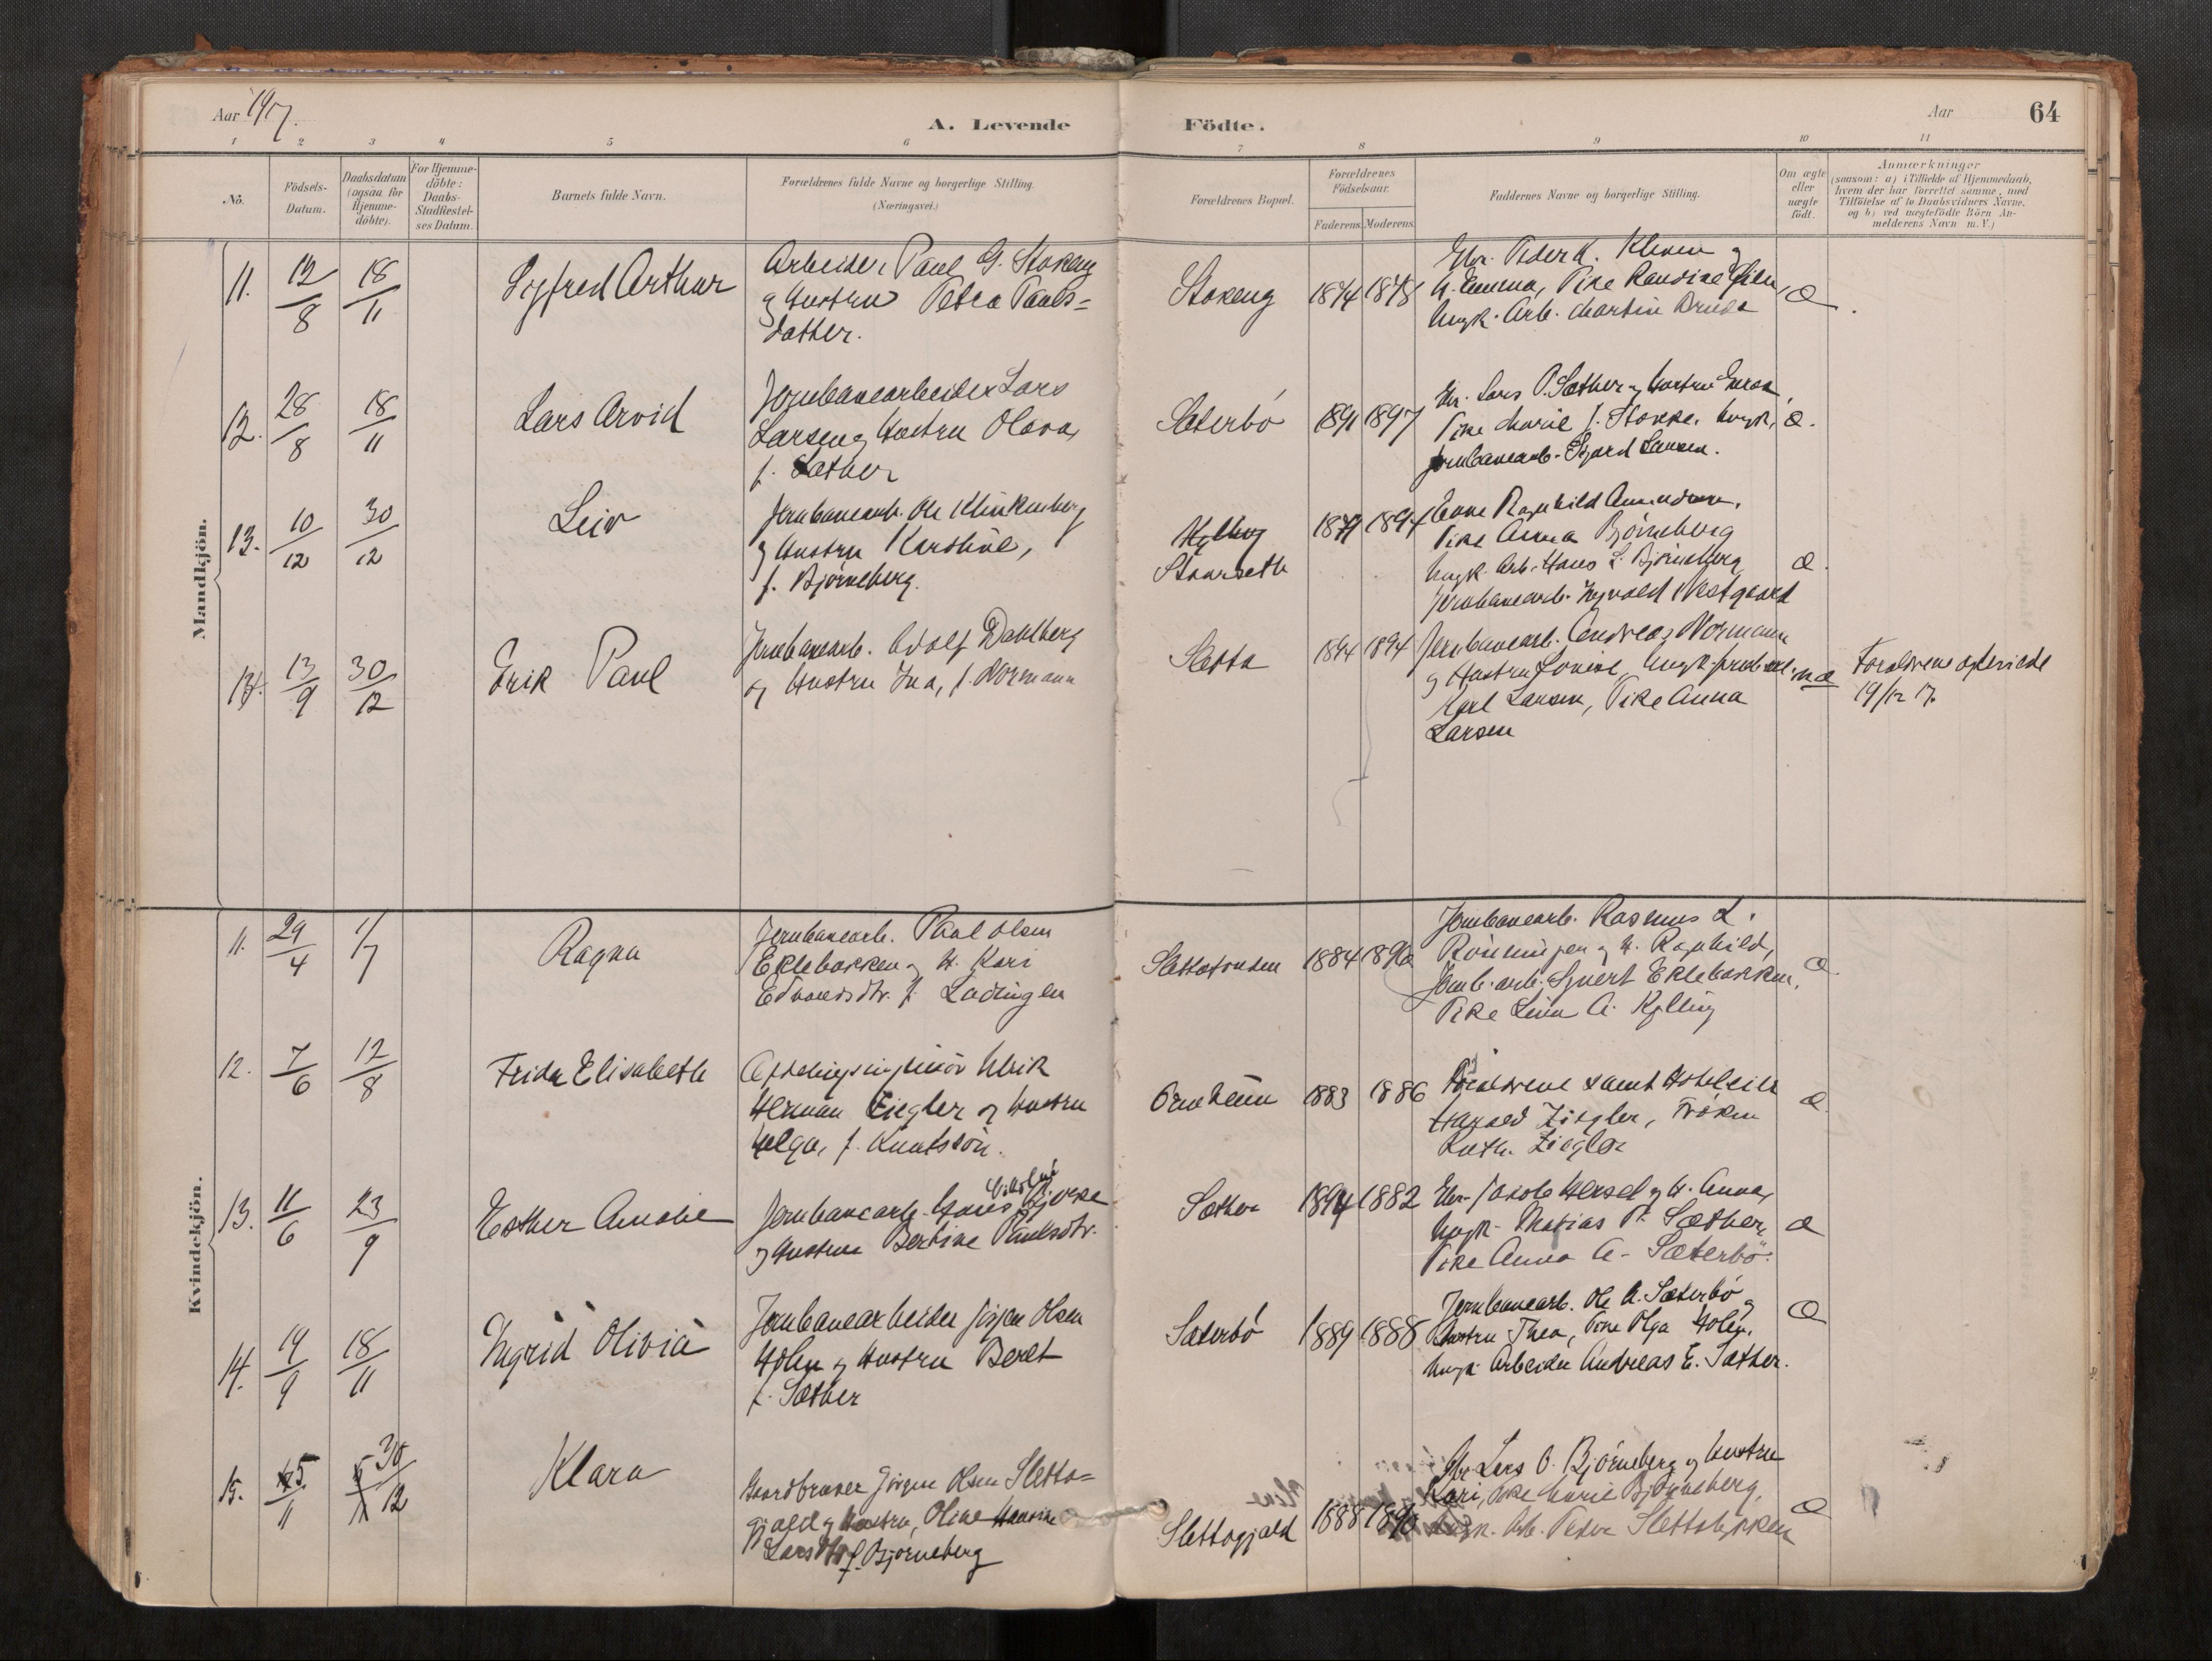 Aar 1917.
A. Levende Födte.
Aar
64
1 2 3 4 5 6 7 8 9 10 11
No.
Födsels-
Datum.
Daabsdatum
(ogsaa for
Hjemme-
döbte).
For Hjemme-
döbte:
Daabs-
Stadfæstel-
ses Datum.
Barnets fulde Navn.
Forældrenes fulde Navne og borgerlige Stilling.
(Næringsvei.)
Forældrenes Bopæl.
Forældrenes
Födselsaar.
Faderens. Moderens.
Faddernes Navne og borgerlige Stilling.
Om ægte
eller
uægte
födt.
Anmærkninger
(saasom: a) i Tilfælde af Hjemmedaab,
hvem der har forrettet samme, med
Tilföielse af to Daabsvidners Navne,
og b) ved uægtefödte Börn An-
melderens Navn m.V.)
Mandkjön.
11. 12/8 18/11
Sigfred Arthur
Arbeider Paul G. Stokeng
og Hustru Petra Pauls=
datter.
Stokeng 1874 1878
Gbr. Peder K. Kleven og
H. Emma, Pike Randine
Ungk. Arb. Martin
æ.
12. 28/8 18/11
Lars Arvid
Jernbanearbeider Lars
Larsen og Hustru Olava,
f. Sæther
Sæterbö 1891 1897
Gbr. Lars P. Sæther og Hustru
Pike Marie J. Stokke, Ungk.
Jernbanearb. Sigurd Larsen.
æ.
13. 10/12 30/12
Leiv
Jernbanearb. Ole Klinkenberg
og Hustru Karoline,
f. Björneberg.
Kylling
Stuurseth
1879 1894
Enke Ragnhild Amundsen,
Pike Anna Björneberg
Ungk. Arb. Hans L. Björneberg
Jernbanearb. Ingvald Westgaard
æ.
14. 13/9 30/12
Erik Paul
Jernbanearb. Adolf Dahlberg
og Hustru Ina, f. Normann
Sletta 1894 1894
Jernbanearb. Andreas Normann
og Hustru Lovise, Ungk. jernb.arb.
Karl Larsen, Pike Anna
Larsen
uæ
Forældrene ægteviede
19/12 17.
Kvindekjön.
11. 29/4 1/7
Ragna
Jernbanearb. Paul Olsen
Eklebakken og H. Kari
Edvardsdtr. f. Lödingen
Slettastranden 1884 1890
Jernbanearb. Rasmus L.
Rönningen og H. Ragnhild,
Jernb.arb. Syvert Eklebakken,
Pike Lina A. Kylling
æ.
12. 7/6 12/8
Frida Elisabeth
Afdelingsingeniör Ulrik
Herman Ziegler og Hustru
Helga, f. Knutssön.
Ormheim 1883 1886
Forældrene samt Hoteleier
Harald Ziegler, Fröken
Ruth Ziegler
æ.
13. 11/6 23/9
Esther Amalie
Jernbanearb. Hans Bjerke
og Hustru Bertine Paulsdtr.
Sæther 1894 1882
Gbr. Jakob Hersel og H. Anna,
Ungk. Mathias P. Sæther,
Pike Anna A. Sæterbö.
æ
14. 14/9 18/11
Ingrid Olivia
Jernbanearbeider Jörgen Olsen
Holen og Hustru Beret
f. Sæther
Sæterbö 1889 1888
Jernbanearb. Ole A. Sæterbö og
Hustru Thea, Pike Olga Holen,
Ungk. Arbeider Andreas E. Sæther.
æ
15. 5/11 30/12
Klara
Gaardbruker Jörgen Olsen Sletta=
gjald og Hustru, Oline
Larsdtr. f. Björneberg
Slettagjald 1888 1890
Gbr. Lars O. Björneberg og Hustru
Kari, Pike Marie Björneberg,
Ungk. Arb. Peder Slettabakken
æ